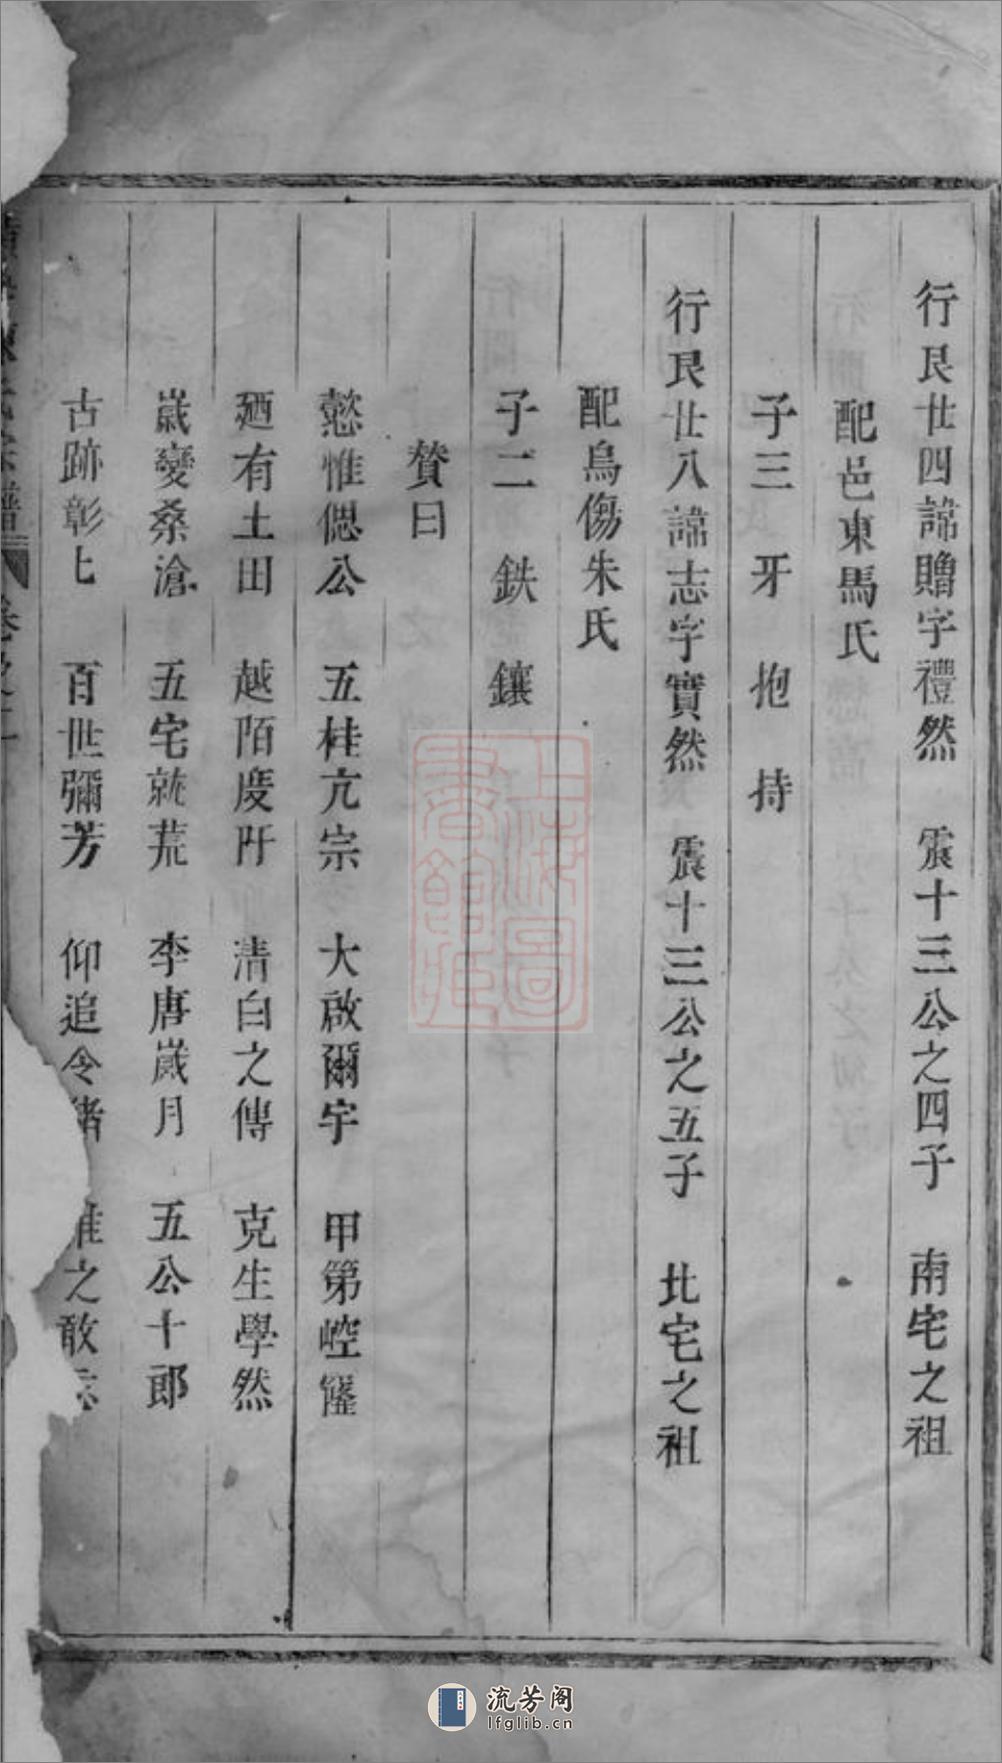 行艮廿四諱贈字禮然 震十三公之四子 南宅之祖
配邑東馬氏
子三 牙 抱 持
行艮廿八諱志字實然 震十三公之五子 北宅之祖
配烏傷朱氏
子二 鉄 鑲
贊曰
懿惟偲公 五桂亢宗 大啟爾宇 甲第崆
廼有土田 越陌度阡 清白之傳 克生學然
嵗變桑滄 五宅就荒 李唐嵗月 五公十郎
古跡彰匕 百世彌芳 仰追令緒 之敢
譜 卷之
上海圖書館藏
流芳阁
lfglib.cn